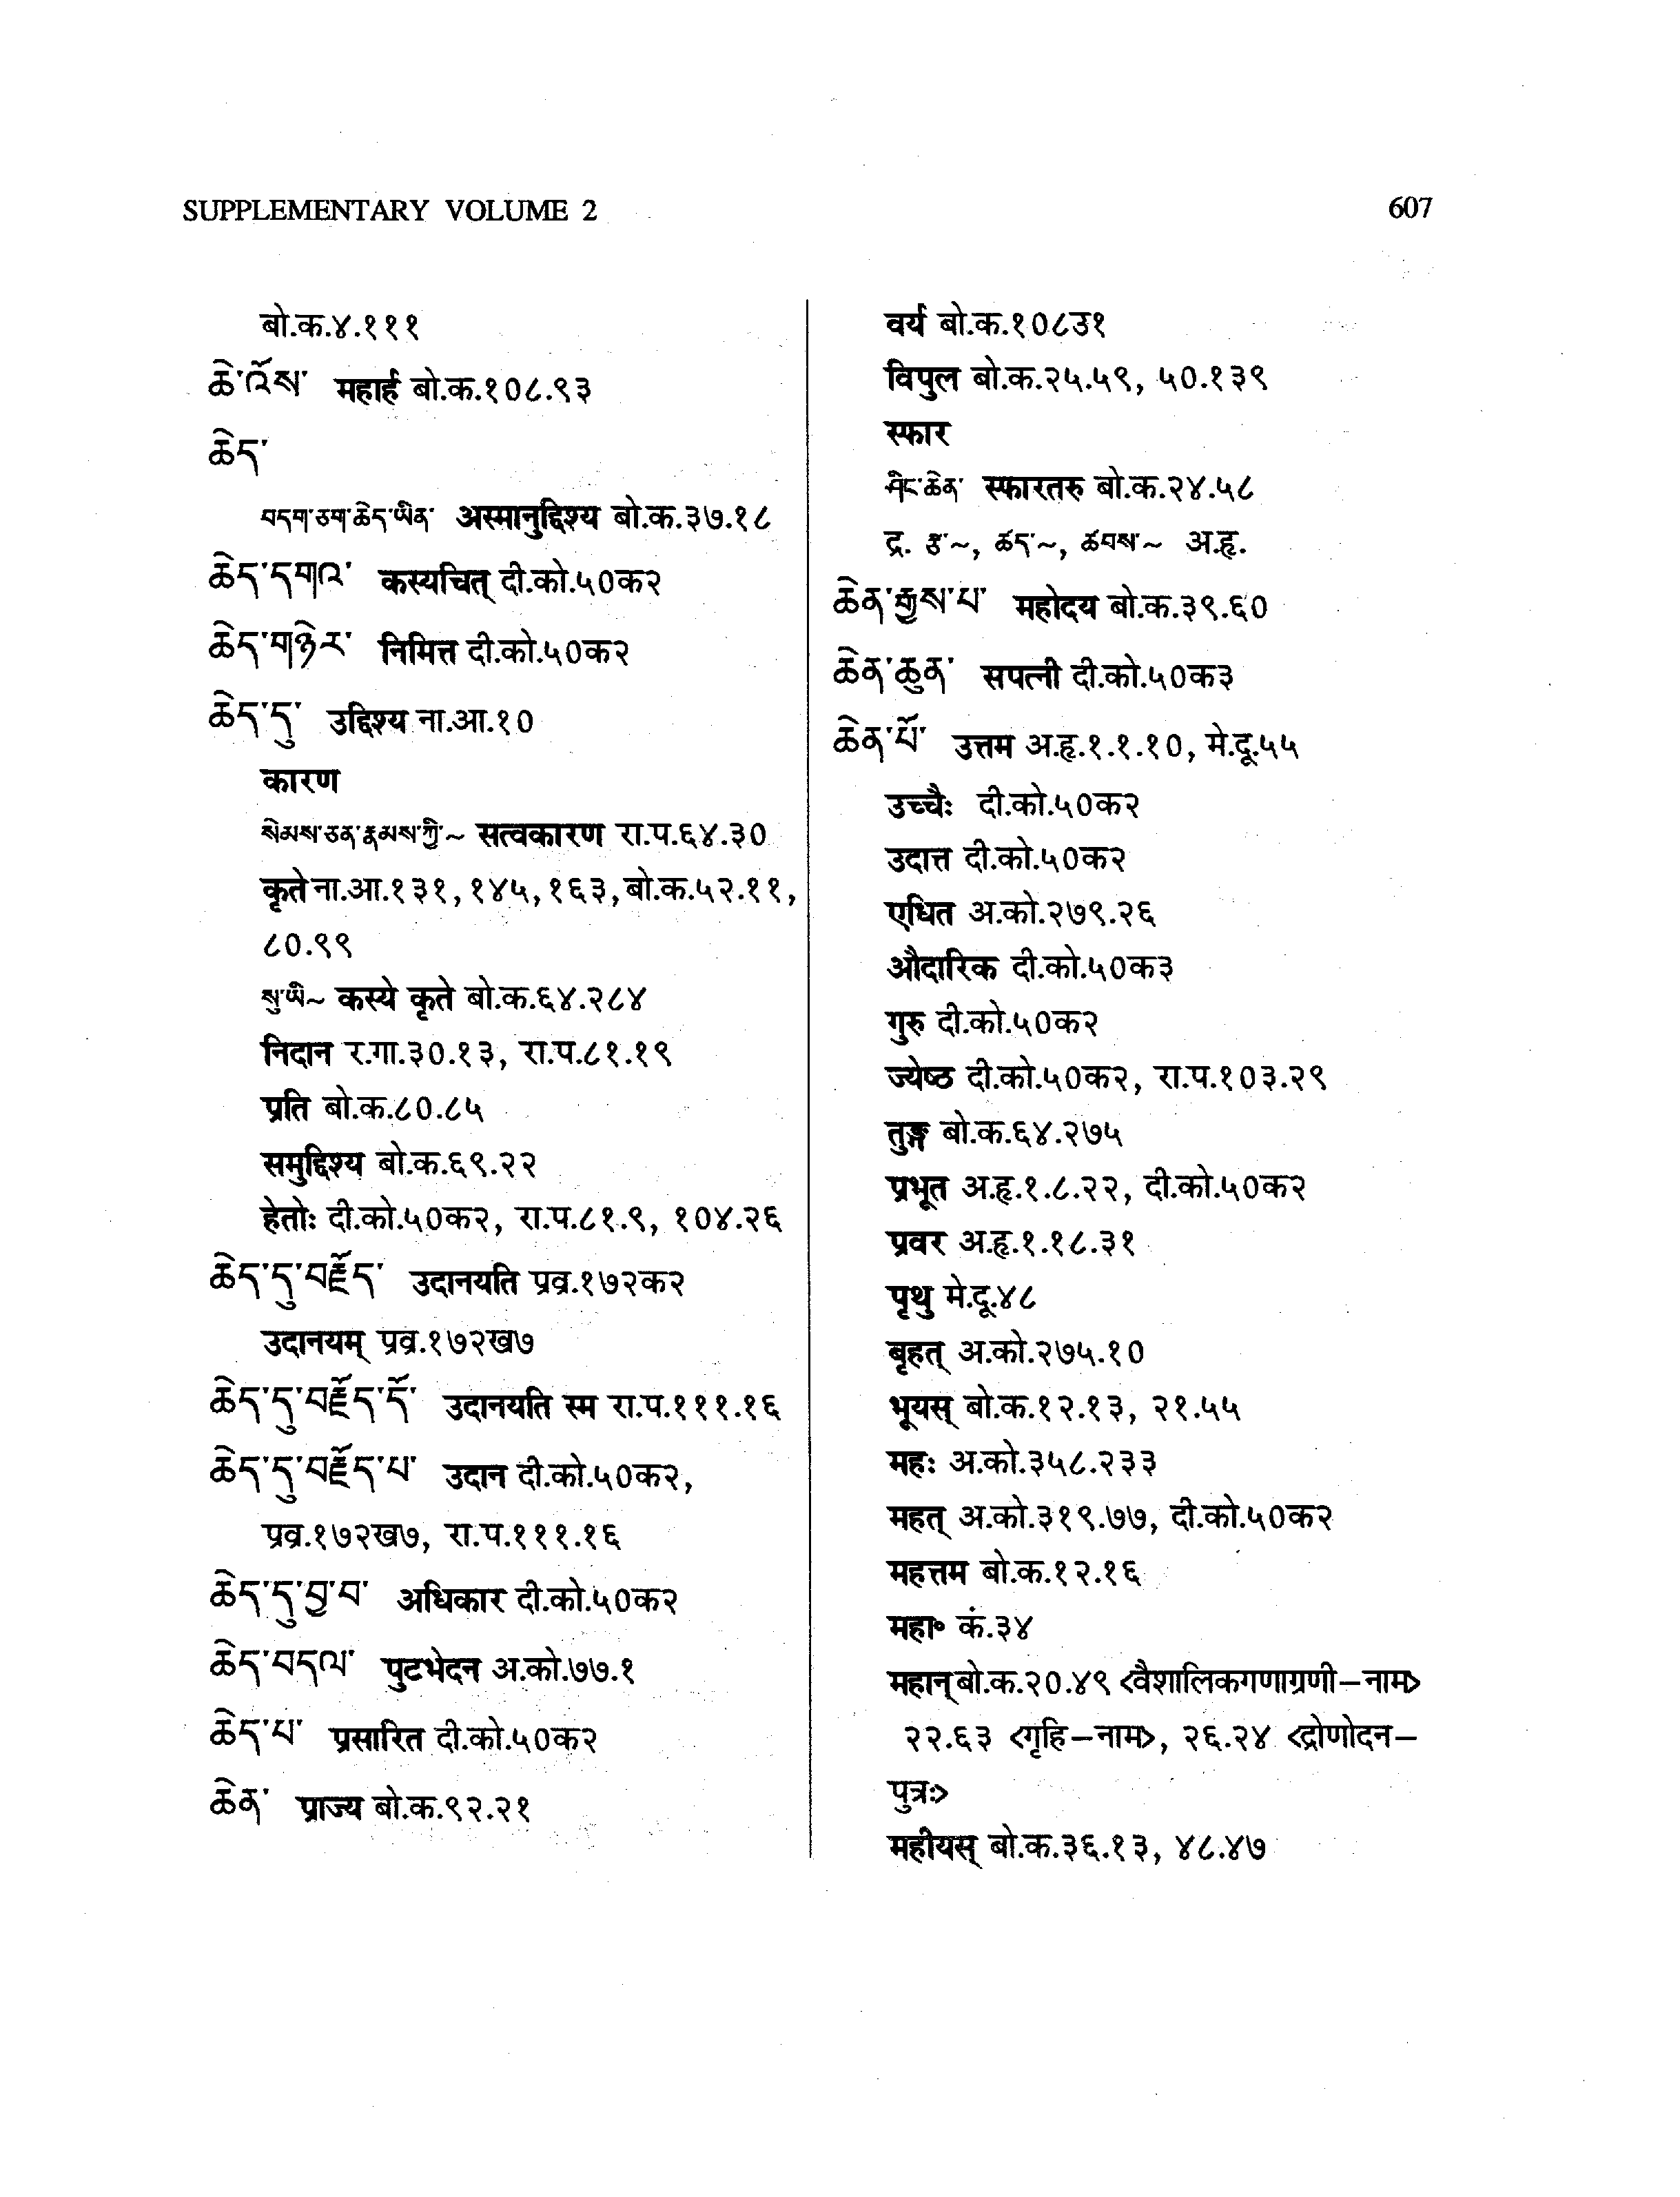 SUPPLEMENTARY VOLUME 2 607
बो.क.४.१११
ཆེ་འོས་ महार्ह बो.क.१०८.९३
ཆེད་
བདག་ཅག་ཆེད་ཡིན་ अस्मानुद्दिश्य बो.क.३७.१८
ཆེད་དགའ་ कस्यचित् दी.को.५०क२
ཆེད་གཉེར་ निमित्त दी.को.५०क२
ཆེད་དུ་ उद्दिश्य ना.आ.१०
कारण
སེམས་ཅན་རྣམས་ཀྱི་~ सत्वकारण रा.प.६४.३०
कृते ना.आ.१३१, १४५, १६३, बो.क.५२.११,
८०.९९
སུ་ཡི་~ कस्ये कृते बो.क.६४.२८४
निदान र.गा.३०.१३, रा.प.८१.१९
प्रति बो.क.८०.८५
समुद्दिश्य बो.क.६९.२२
हेतोः दी.को.५०क२, रा.प.८१.९, १०४.२६
ཆེད་དུ་བརྗོད་ उदानयति प्रव्र.१७२क२
उदानयम् प्रव्र.१७२ख७
ཆེད་དུ་བརྗོད་དོ་ उदानयति स्म रा.प.१११.१६
ཆེད་དུ་བརྗོད་པ་ उदान दी.को.५०क२,
प्रव्र.१७२ख७, रा.प.१११.१६
ཆེད་དུ་བྱ་བ་ अधिकार दी.को.५०क२
ཆེད་བདལ་ पुटभेदन अ.को.७७.१
ཆེད་པ་ प्रसारित दी.को.५०क२
ཆེན་ प्राज्य बो.क.९२.२१
वर्य बो.क.१०८उ१
विपुल बो.क.२५.५९, ५०.१३९
स्फार
ཤིང་ཆེན་ स्फारतरु बो.क.२४.५८
द्र. རྩ་~, ཚད་~, ཚབས་~ अ.हृ.
ཆེན་རྒྱས་པ་ महोदय बो.क.३९.६०
ཆེན་ཆུན་ सपत्नी दी.को.५०क३
ཆེན་པོ་ उत्तम अ.हृ.१.१.१०, मे.दू.५५
उच्चैः दी.को.५०क२
उदात्त दी.को.५०क२
एधित अ.को.२७९.२६
औदारिक दी.को.५०क३
गुरु दी.को.५०क२
ज्येष्ठ दी.को.५०क२, रा.प.१०३.२९
तुङ्ग बो.क.६४.२७५
प्रभूत अ.हृ.१.८.२२, दी.को.५०क२
प्रवर अ.हृ.१.१८.३१
पृथु मे.दू.४८
बृहत् अ.को.२७५.१०
भूयस् बो.क.१२.१३, २१.५५
महः अ.को.३५८.२३३
महत् अ.को.३१९.७७, दी.को.५०क२
महत्तम बो.क.१२.१६
महा॰ कं.३४
महान् बो.क.२०.४९ <वैशालिकगणाग्रणी-नाम>
२२.६३ <गृहि-नाम>, २६.२४ <द्रोणोदन-
पुत्रः>
महीयस् बो.क.३६.१३, ४८.४७